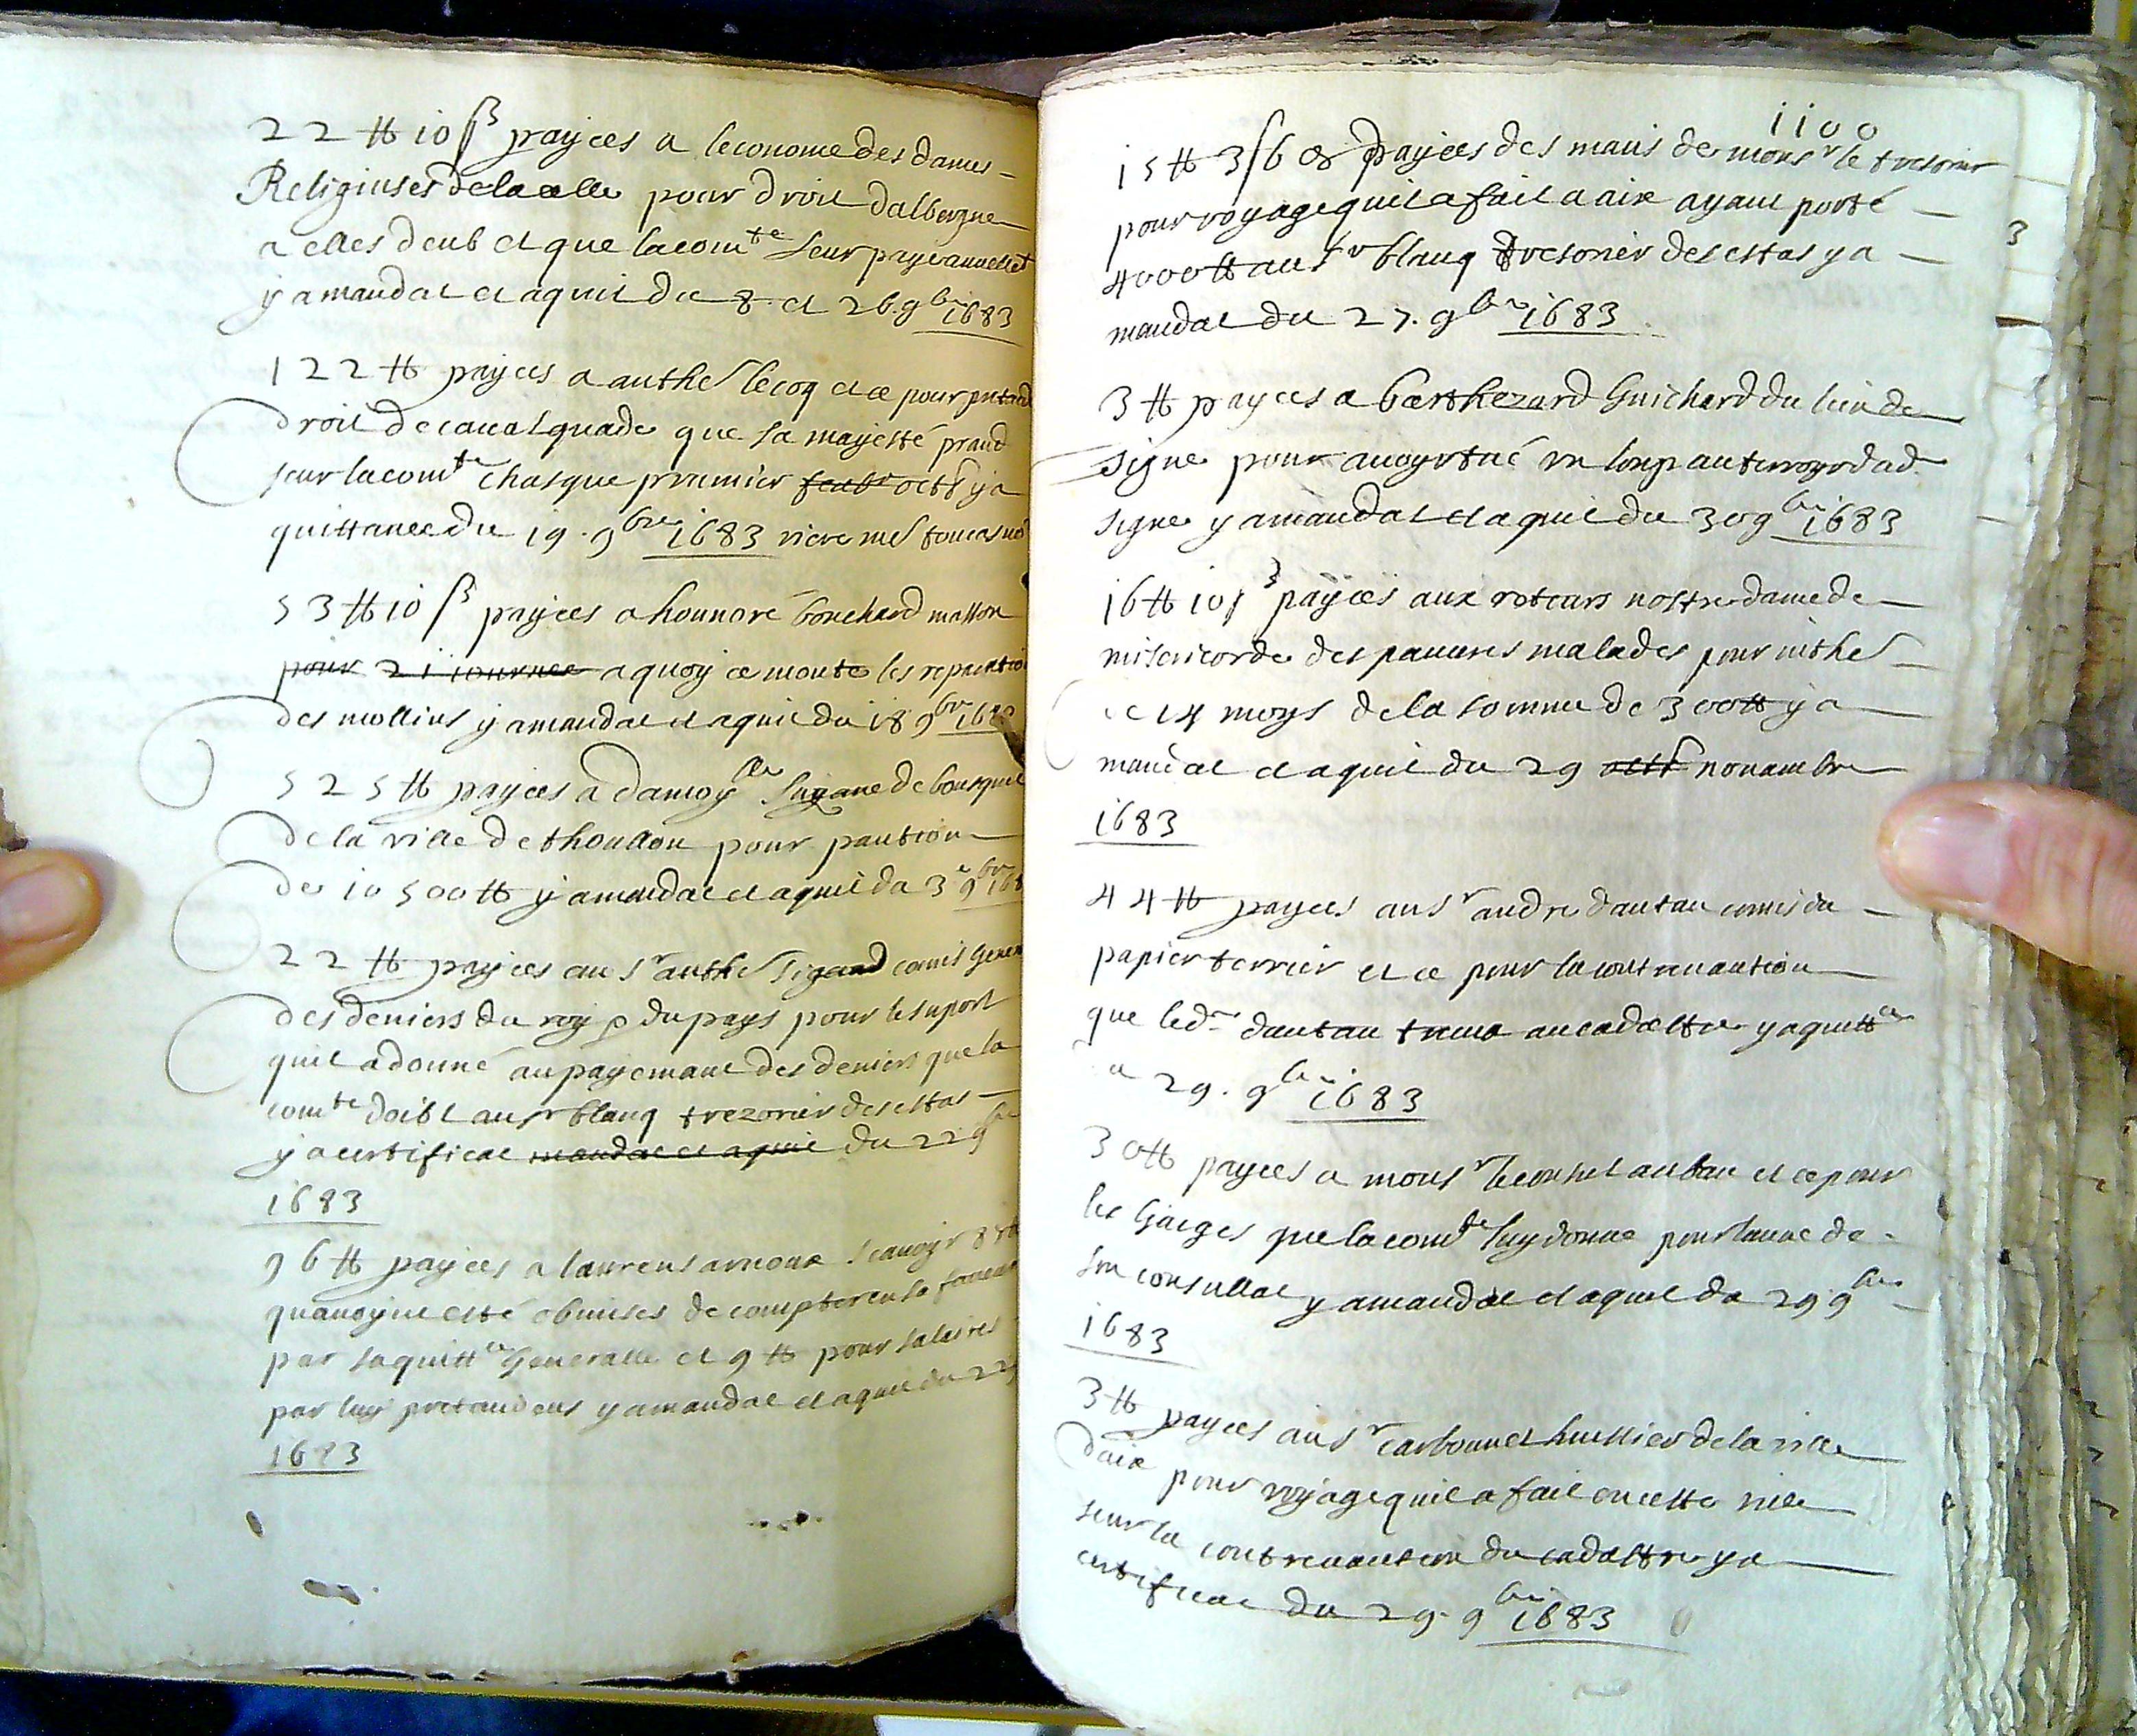 22 ₶ 10 ß payées a leconome des dames
Religiuses de la celle pour droit dalbergue
a elles deub et que la comte leur paye annuellet
y a mandat et aquit du 8 et 26. 9bre 1683
122 ₶ payées a anthe lecoq et ce pour
droit de caualquade que sa majesté prand
sur la comte chasque premier octb y a
quittance du 19. 9bre 1683 riere me
53 ₶ 10 ß payées a honnoré bouchard masson
pour 21 iournee a quoy ce monte les reparatio
des mollins y a mandat et aquit du 18 9bre 1683
525 ₶ payées a damoylle de bousquet
de la ville de thoullon pour pantion
de 10500 ₶ y a mandat et aquit du 3e 9bre 168
22 ₶ payées au sr anthe comis gener
des deniers du roy & du pays pour le suport
quil a donné au payemant des deniers que la
comte doibt au sr blanq trezorier des estas
y a certificat mandat et aquit du 22 9bre
1683
96 ₶ payées a laurens arnoux scauoyr 87 ₶
quauoyint esté obmises de compter en sa faueur
par sa quittce generalle et 9 ₶ pour salaires
par luy pretandeus y a mandat et aquit du 22 9
1683
1100
15 ₶ 3 ß 6 & payées des mains de monsr le tresorier
pour voyage quil a fait a aix ayant porté
4000 ₶ au sr blanq tresorier des estas y a
mandat du 27. 9bre 1683
3
3 ₶ payées a barthezard Guichard du lieu de
signe pour auoyr tué vn loup au terroyr dud
signe y a mandat et aquit du 30 9bre 1683
16 ₶ 10 ß payées aux returs nostre dame de
misericorde des pauures malades pour
14 moys de la somme de 300 ₶ y a
mandat et aquit du 29 octb nouambre
1683
44 ₶ payées au sr andre dautan comis du
papier terrier et ce pour la contreuantion
que led dautan truua au cadastre y a quittce
29. 9bre 1683
30 ₶ payées a monsr le consul auban et ce pour
les Gaiges que la comte luy donne pour lanne de
son consullat y a mandat et aquit du 29 9bre
1683
3 ₶ payées au sr carbonnel huissier de la ville
daix pour voyage quil a fait en cette ville
sur la contreuantion du cadastre y a
certificat du 29. 9bre 1683